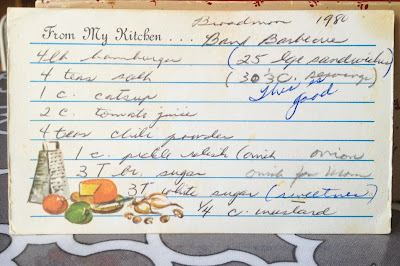 Broadmoor 1980
From My Kitchen . . . Band Barbecue
4 lb hamburger (25 lge sandwiches)
4 teas salt (30
1 c. catsup This is good
2 c. tomato juice
4 teas chili powder
1 c. pickle relish (omit onion
3 T br. sugar omit for
3T white sugar (sweetner)
1/4 c. mustard